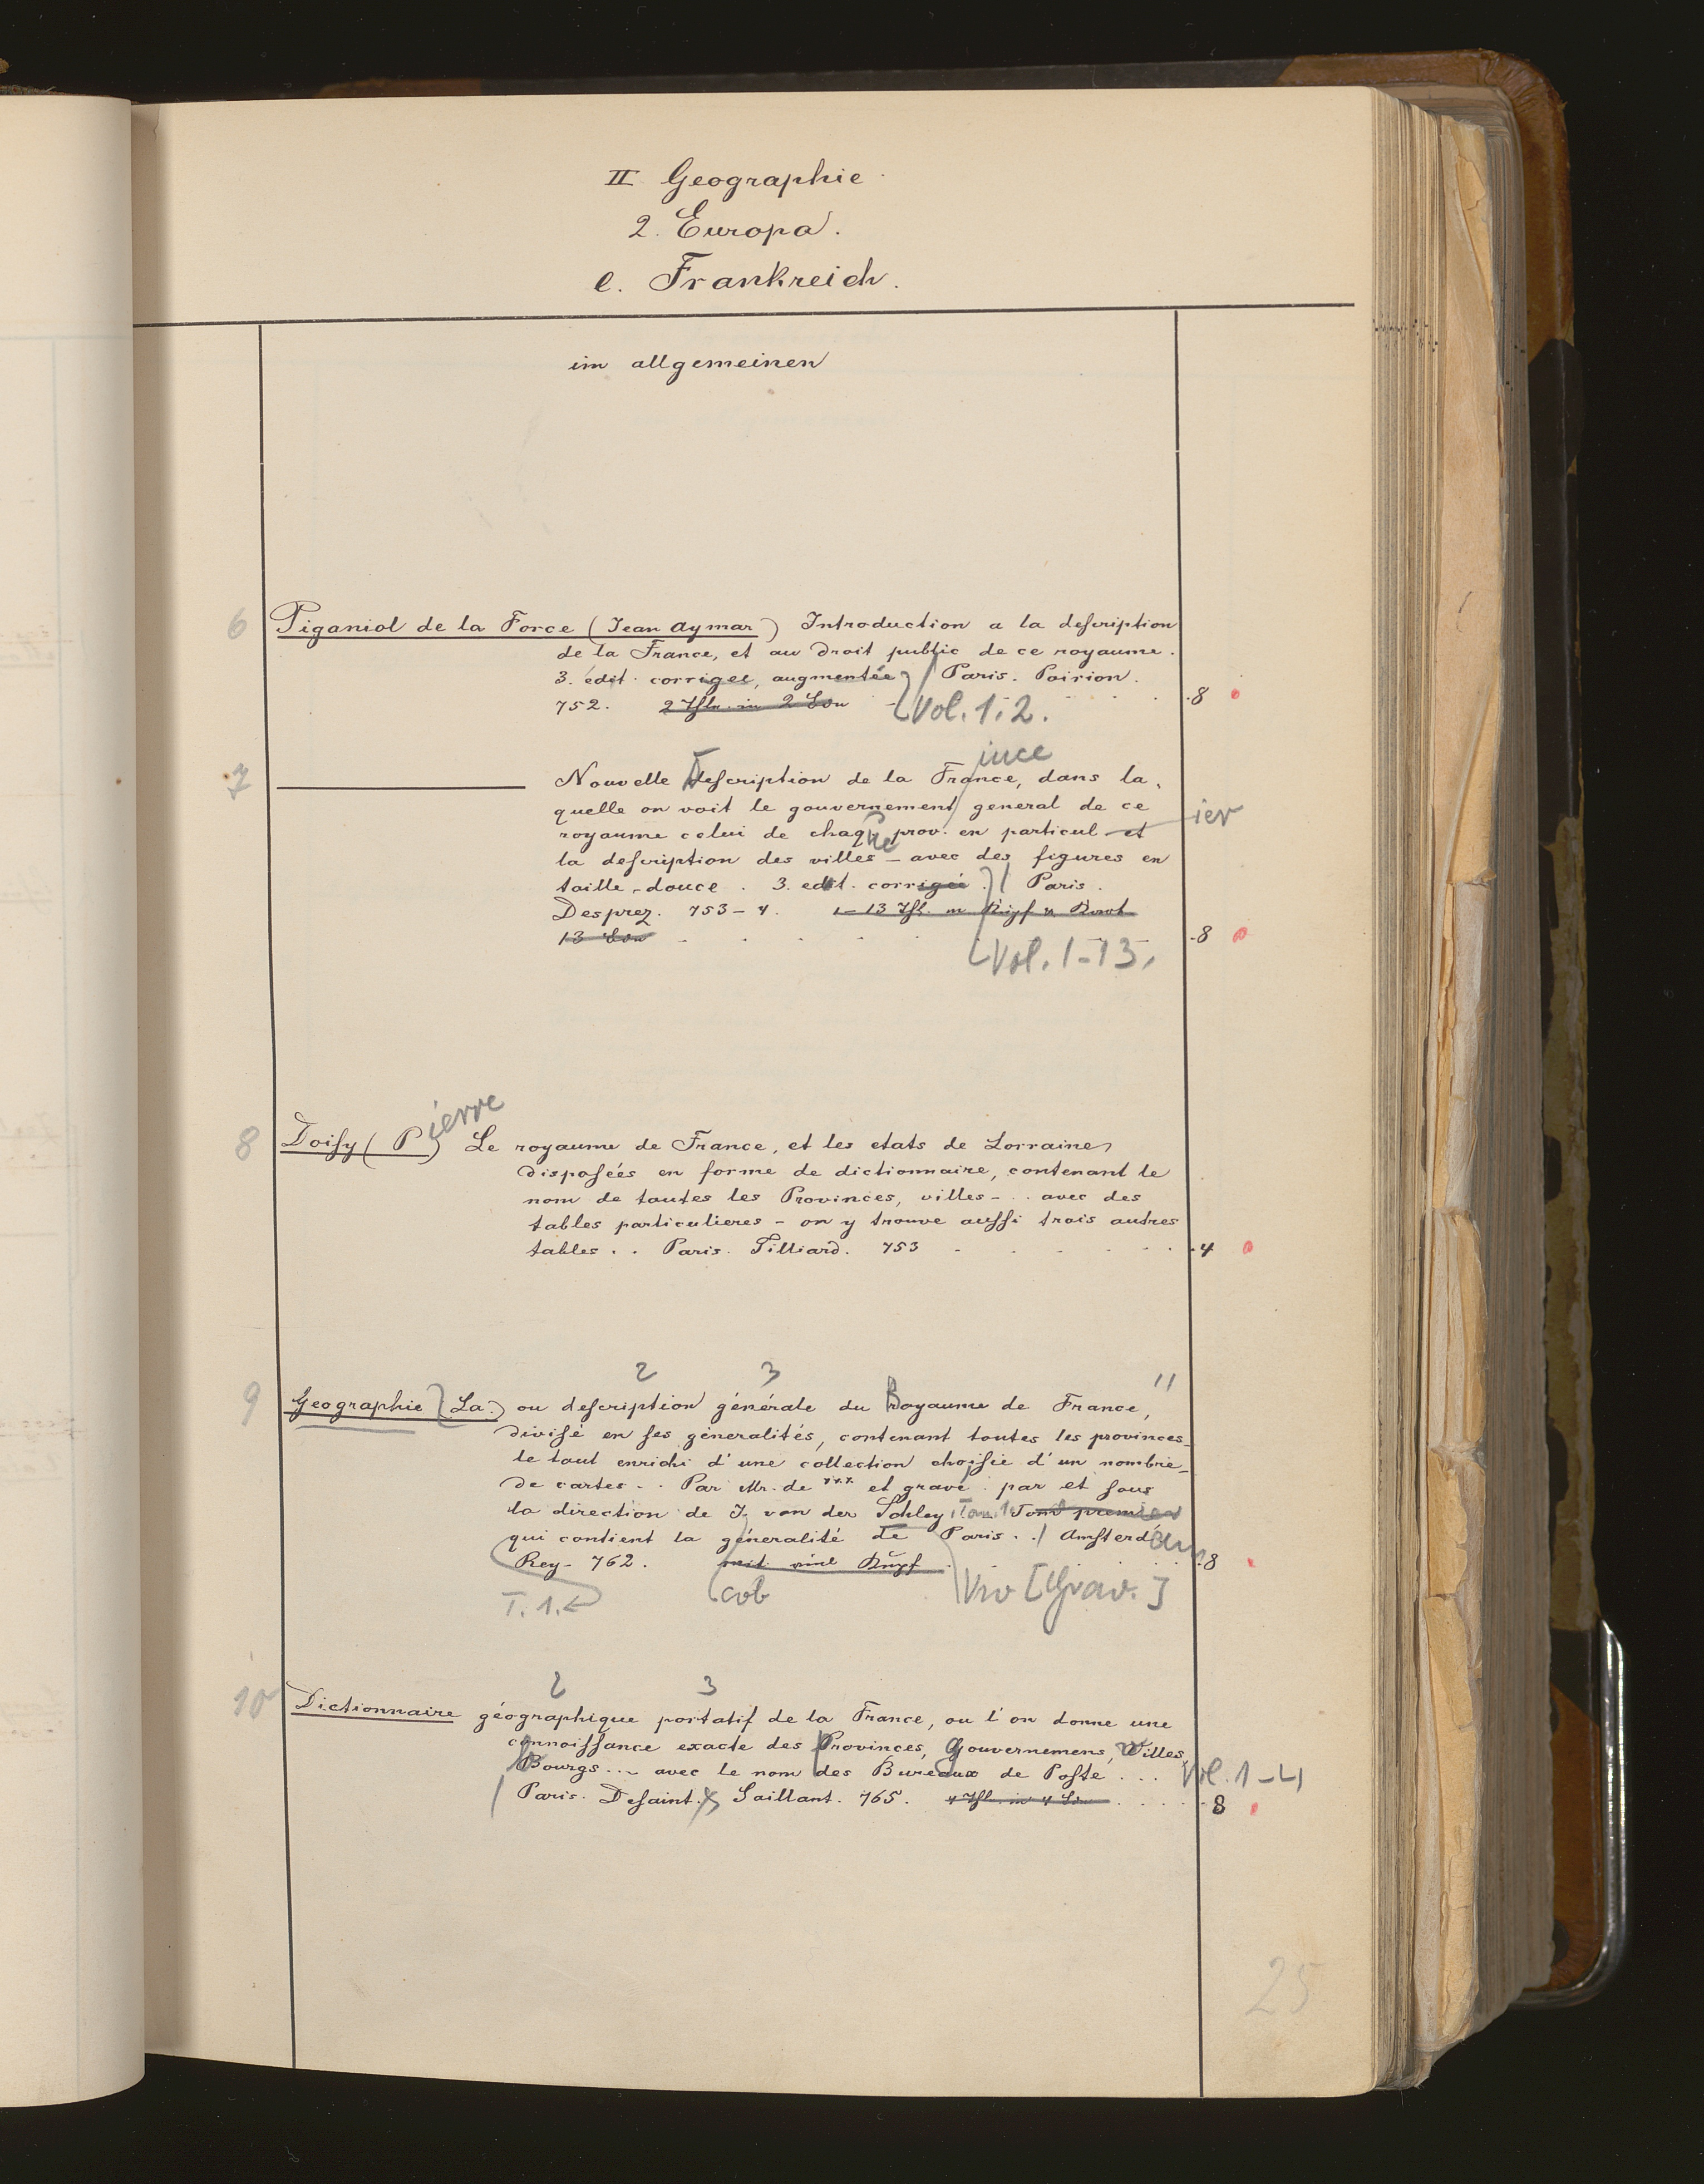 II Geographie
2. Europa.
e. Frankreich.
im allgemeinen
6 Piganiol de la Force (Jean Aymar) Introduction a la description
de la France, et au droit public de ce royaume.
3. édit. corrigee, augmentée Paris. Poirion.
752. 2 Thle. in 2 Bdn Vol. 1.2. 8
ince
7 Nouvelle Description de la France, dans la
quelle on voit le gouvernement general de ce
royaume celui de chaque prov. en particul et ier
la description des villes - avec des figures en
taille-douce. 3. edit. corrigée Paris.
Desprez. 753-4. 1-13 Thl. m Kupf u
13 Bdn 8
Vol. 1-13.
ierre
8 Doisy (P) Le royaume de France, et les etats de Lorraine
disposées en forme de dictionnaire, contenant le
nom de toutes les Provinces, villes - . . avec des
tables particulieres - on y trouve aussi trois autres
tables . . Paris. Tilliard. 753 4
2 3 11
9 Geographie (La) ou description générale du Royaume de France,
divisé en ses géneralités, contenant toutes les provinces
le tout enrichi d'une collection choisie d'un nombrie
de cartes . . Par Mr. de *** et gravé par et sous
la direction de J. van der Schley Tom. 1 Tom premier
qui contient la géneralité de Paris . . Amsterdam
Rey. 762. mit viel Kupf 8
T. 1. cob [Grav.]
2 3
10 Dictionnaire géographique portatif de la France, ou l'on donne une
connoissance exacte des Provinces, Gouvernemens, Villes,
Bourgs . . . avec le nom des Bureaux de Poste . . . Vol. 1-4
Paris. Desaint & Saillant. 765. 4 Thl. in 4 Bdn 8
25